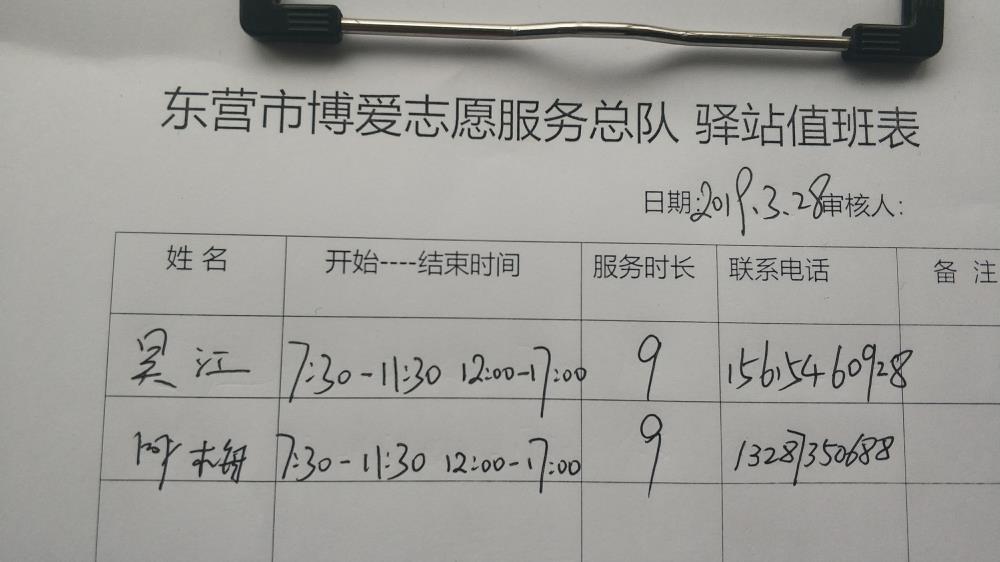 东营市博爱志愿服务总队 驿站值班表
日期:2019.3.28审核人:
姓名 开始----结束时间 服务时长 联系电话 备注
吴江 7:30-11:30 12:00-17:00 9 15615460928
7:30-11:30 12:00-17:00 9 13287350688